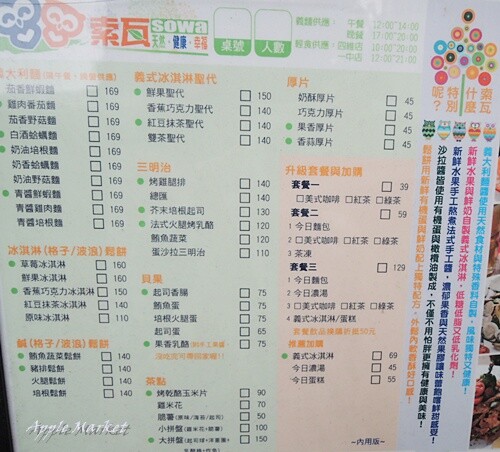 索瓦 sowa
天然・健康・幸福
桌號
人數
義麵供應： 午餐 12:00~14:00
晚餐 17:00~20:00
輕食供應：四維店 10:00~20:00
一中店 17:00~21:00
索瓦
什麼
特別
呢？
義大利麵
茄香鮮蝦麵 169
雞肉番茄麵 169
茄香野菇麵 169
白酒蛤蠣麵 169
奶油培根麵 169
奶香蛤蠣麵 169
奶油野菇麵 169
青醬鮮蝦麵 169
青醬雞肉麵 169
青醬培根麵 169
冰淇淋(格子/波浪)鬆餅
草莓冰淇淋 160
鮮果冰淇淋 160
香蕉巧克力冰淇淋 150
紅豆抹茶冰淇淋 140
原味冰淇淋 110
鹹(格子/波浪)鬆餅
鮪魚蔬菜鬆餅 140
豬排鬆餅 140
火腿鬆餅 140
培根鬆餅 140
義式冰淇淋聖代
鮮果聖代 150
香蕉巧克力聖代 140
紅豆抹茶聖代 130
雙茶聖代 140
三明治
烤雞腿排 140
總匯 140
芥末培根起司 130
法式火腿烤乳酪
鮪魚蔬菜 130
蛋沙拉三明治 110
貝果
起司香腸 75
鮪魚蛋 75
培根火腿蛋 75
起司蛋 65
果香乳酪 75
茶點
烤乾酪玉米片 90
雞米花 70
脆薯 50
小拼盤 100
大拼盤
厚片
奶酥厚片 45
巧克力厚片 45
果香厚片 45
香蒜厚片 45
升級套餐與加購
套餐一 39
□美式咖啡 □紅茶 □綠茶
套餐二 59
1 今日麵包
2 □美式咖啡 □紅茶 □綠茶
3 茶凍
套餐三 129
1 今日麵包
2 今日濃湯
3 □美式咖啡 □紅茶 □綠茶
4 義式冰淇淋/蛋糕
套餐飲品接購折抵50元
推薦加購
義式冰淇淋 69
今日濃湯 45
今日蛋糕 55
~內用版~
義大利麵醬使用天然食材與特殊香料自製，風味獨特又健康！
新鮮水果與鮮奶自製義式冰淇淋，低糖低脂又低乳化劑！
新鮮水果手工熬煮法式手工醬，濃郁果香與天然果膠讓味蕾飽嚐鮮甜感受！
沙拉醬皆使用有機蛋與橄欖油製成，不僅不用怕胖更擁有健康與美味！
鬆餅用新鮮有機蛋與鮮奶配上獨特配方，外鬆內軟香酥好口感！
Apple Market